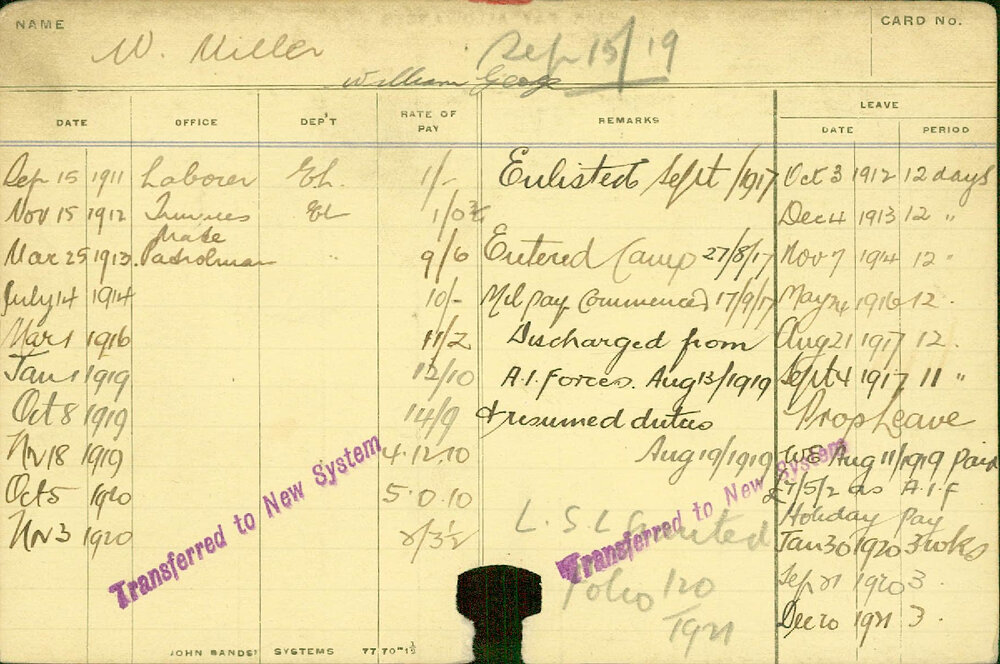 NAME
W. Miller
William George
Sep 15/19
CARD No.
DATE OFFICE DEP'T RATE OF PAY REMARKS LEAVE
DATE PERIOD
Sep 15 1911 Laborer EL. 1/- Enlisted Sept /1917 Oct 3 1912 12 days
Nov 15 1912 Trimmers EL 1/0¾ Dec 4 1913 12 "
Mate
Mar 25 1913 Patrolman " 9/6 Entered Camp 27/8/17 Nov 7 1914 12 "
July 14 1914 10/- Mil pay commenced 17/9/17 May 24 1916 12 .
Mar 1 1916 11/2 Discharged from Aug 21 1917 12 .
Jan 1 1919 12/10 A.I. Forces. Aug 13/1919 Sept 4 1917 11 "
Oct 8 1919 14/9 & resumed duties Prop Leave
Nv 18 1919 4.12.10 Aug 19/1919 WE Aug 11/1919 paid
Oct 5 1920 5.0.10 £7/5/2 as A.I.F
Holiday Pay
Nv 3 1920 2/3½ L.S.L Granted Jan 30 1920 3 wks
Folio 120 Sep 21 1920 3 .
1921 Dec 20 1921 3 .
Transferred to New System
Transferred to New System
SYSTEMS